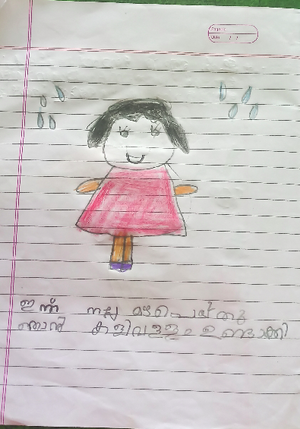 ഇന്ന് നല്ല മഴപെയ്തു
ഞാൻ കളിവള്ളം ഉണ്ടാക്കി